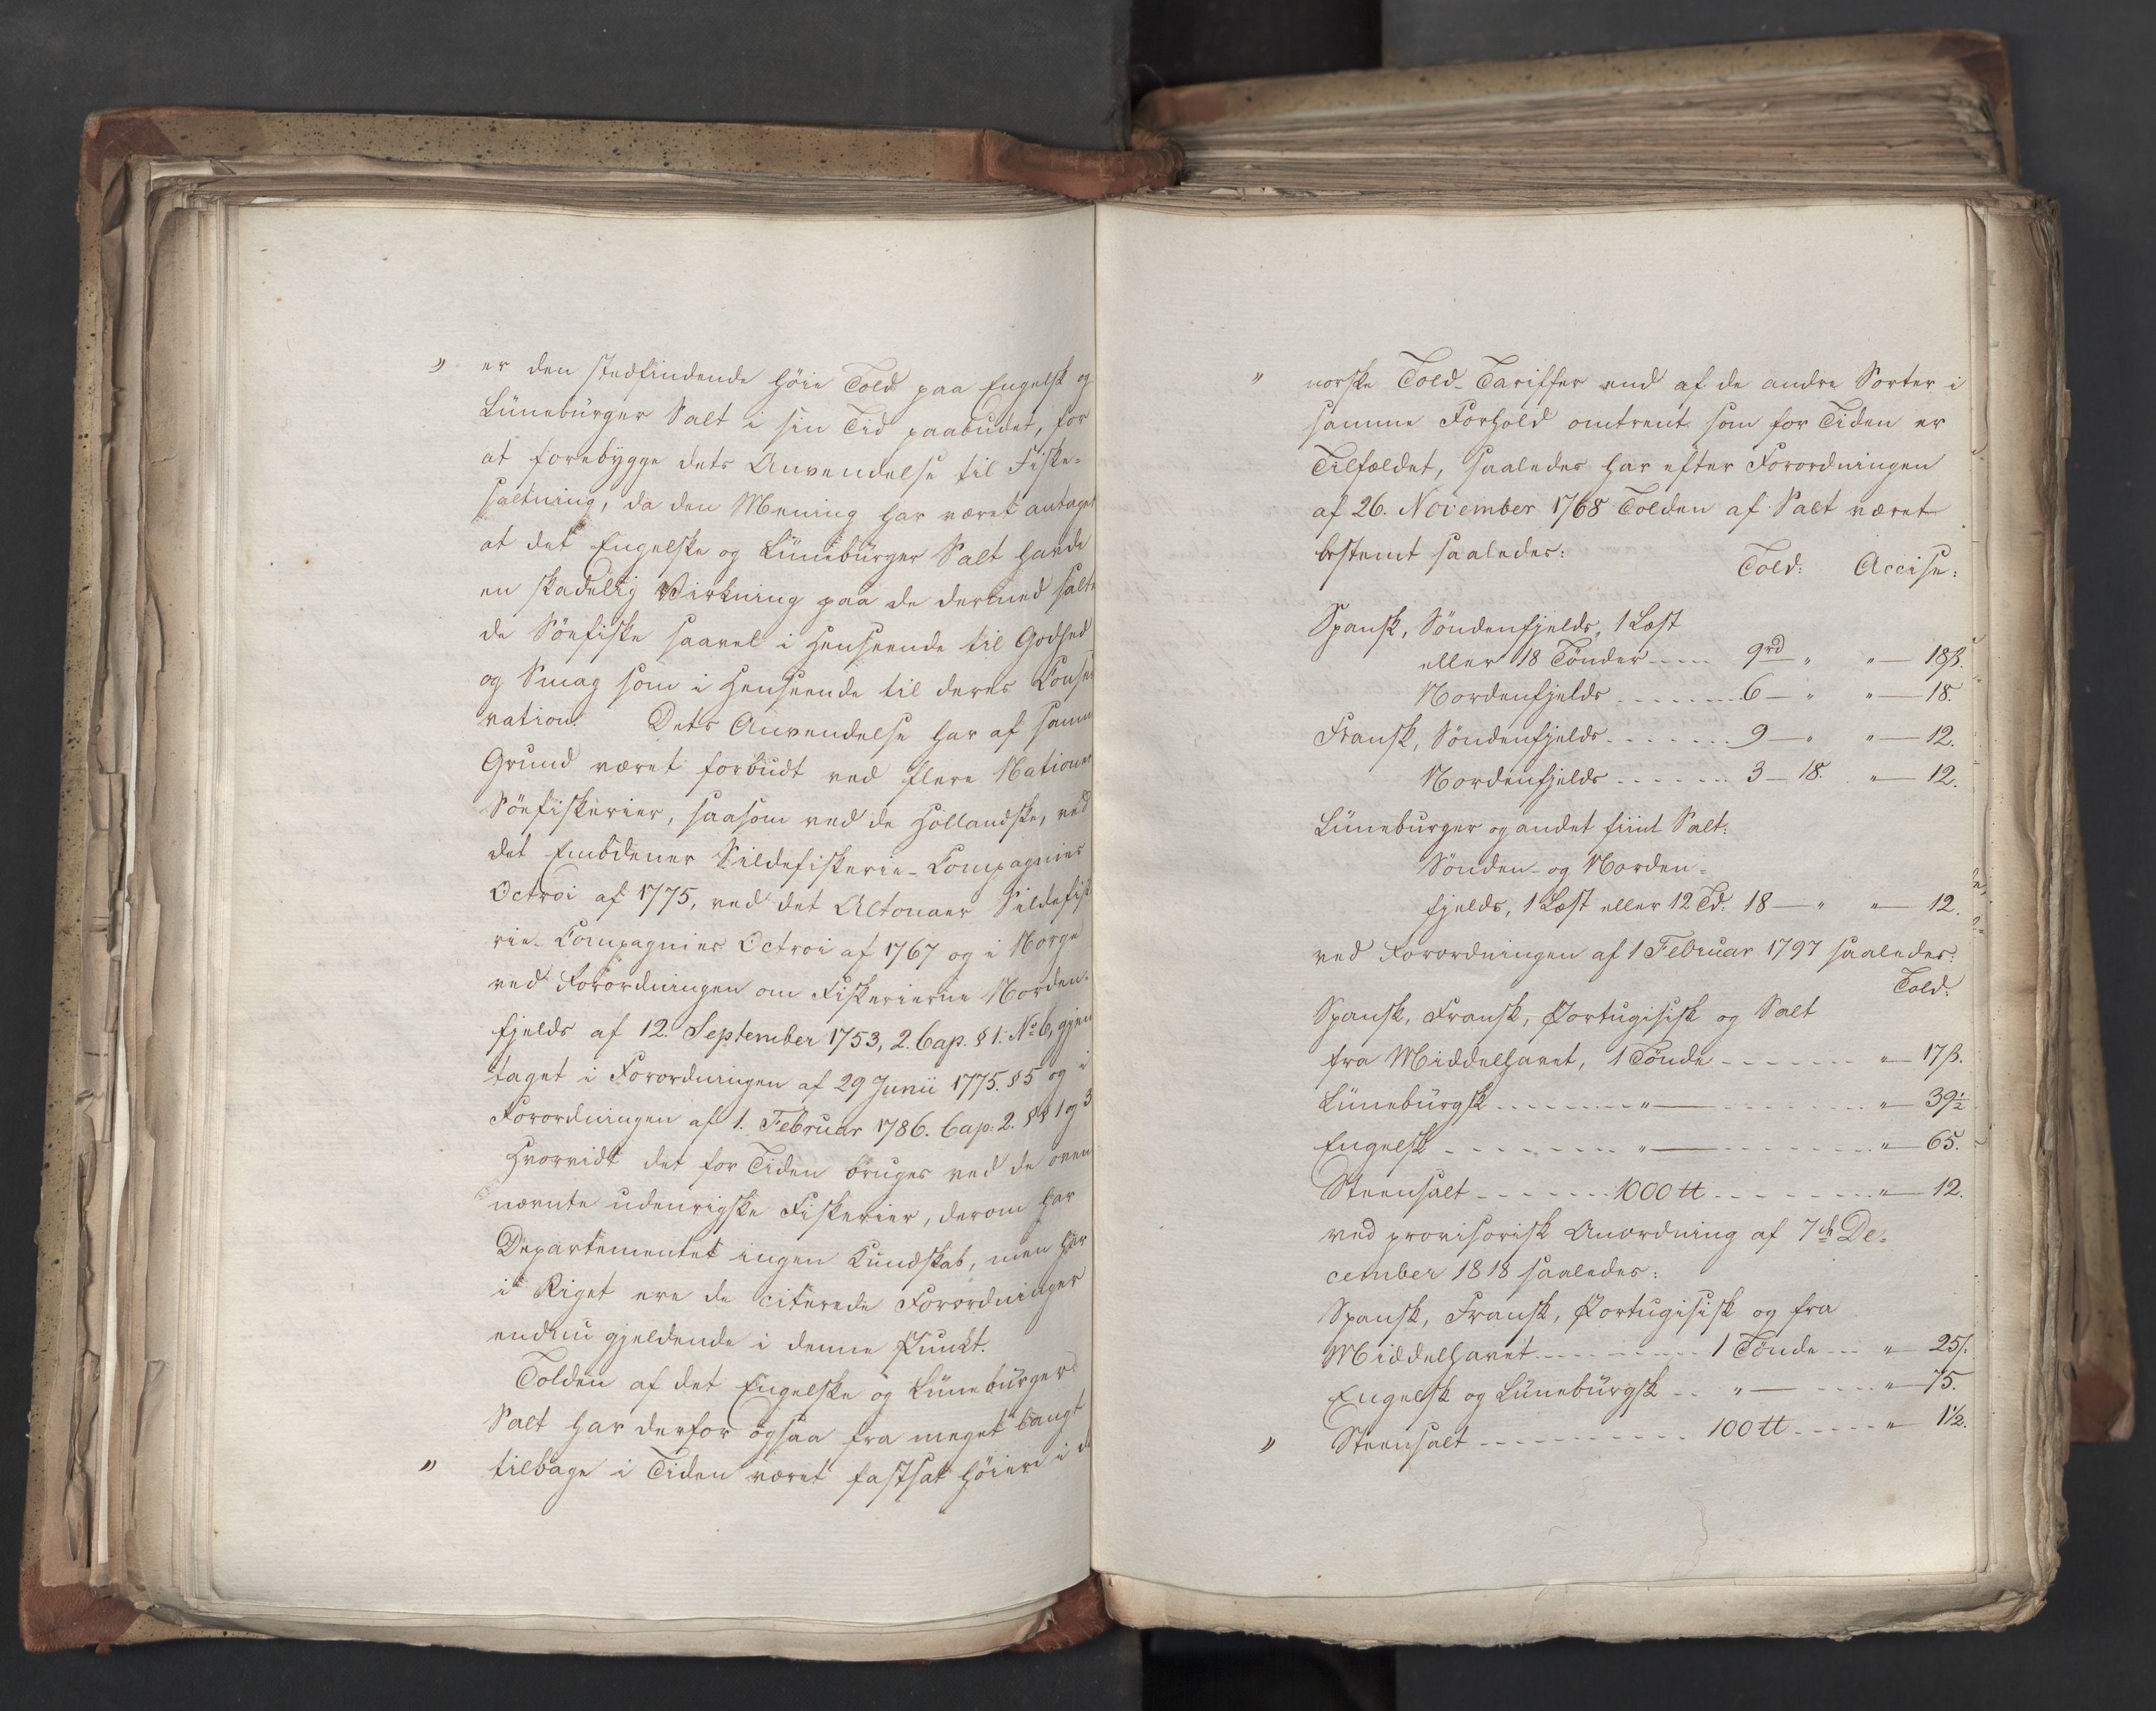 " er den stedfindende høie Told paa Engelsk og
Lüneburger Salt i sin Tid paabudet, for
at forebygge dets Anvendelse til Fiske-
saltning, da den Mening har været antaget
at det Engelske og Lüneburger Salt havde
en skadelig Virkning paa de dermed salte
de Söefiske saavel i Henseende til Godhed
og Smag som i Henseende til deres Conser
vation. Dets Anvendelse har af samme
Grund været forbudt ved flere Nationer
Söefiskerier, saasom ved de Hollandske, ved
det Embdener Sildefiskerie-Compagnies
Octroi af 1775, ved det Altonaer Sildefiske
rie-Compagnies Octroi af 1767 og i Norge
ved Forordningen om Fiskerierne Norden-
fjelds af 12. September 1753, 2. Cap. § 1. No 6, gjen
taget i Forordningen af 29 Junii 1775. § 5 og i
Forordningen af 1. Februar 1786. Cap: 2. §§ 1 og 3
Hvorvidt det for Tiden bruges ved de oven
nævnte udenrigske Fiskerier, derom har
Departementet ingen Kundskab, men her
i Riget ere de citerede Forordninger
endnu gjeldende i denne Punkt.
Tolden af det Engelske og Lüneburger
Salt har derfor ogsaa fra meget langt
" tilbage i Tiden været fastsat høiere i d
" norske Told-Tariffer end af de andre Sorter i
samme Forhold omtrent som for Tiden er
Tilfældet, saaledes har efter Forordningen
af 26. November 1768 Tolden af Salt været
bestemt saaledes:
Told: Accise:
Spansk, Söndenfjelds, 1 Læst
eller 18 Tönder ---- 9rd " " — 18ß.
Nordenfjelds ------- 6 — " " — 18.
Fransk, Söndenfjelds ------- 9 — " " — 12.
Nordenfjelds ------ 3 — 18. " — 12.
Lüneburger og andet fiint Salt:
Sönden- og Norden-
fjelds, 1 Læst eller 12 Td. 18 — " " — 12.
ved Forordningen af 1 Februar 1797 saaledes:
Told:
Spansk, Fransk, Portugisisk og Salt
fra Middelhavet, 1 Tönde ------- " — 17ß.
Lüneburgsk -------- " — -------- " — 39½
Engelsk -------- " — -------- " — 65.
Steensalt ------- 1000 ℔ -------- " — 12.
ved provisorisk Anordning af 7de De-
cember 1818 saaledes:
Spansk, Fransk, Portugisisk og fra
Middelhavet --------- 1 Tönde --- " — 25ß.
Engelsk og Lüneburgsk -- " — ---- " — 75.
" Steensalt ----------- 100 ℔ ----- " — 1½.